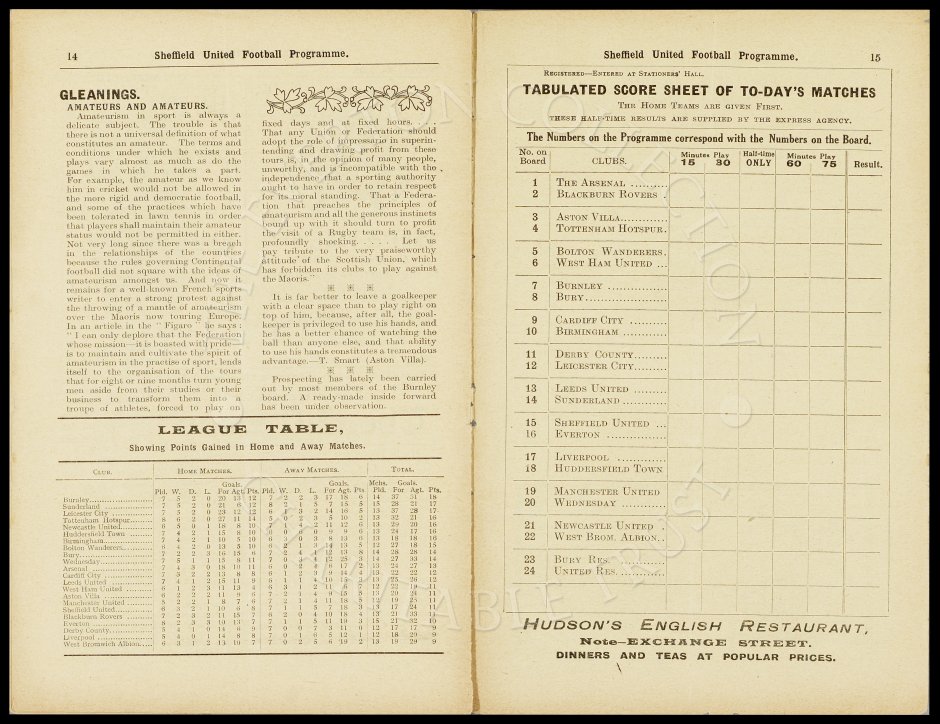 14
Sheffield United Football Programme.
GLEANINGS.
AMATEURS AND AMATEURS.
Amateurism in sport is always a
delicate subject. The trouble is that
there is not a universal definition of what
constitutes an amateur. The terms and
conditions under which he exists and
plays vary almost as much as do the
games in which he takes a part.
For example, the amateur as we know
him in cricket would not be allowed in
the more rigid and democratic football,
and some of the practices which have
been tolerated in lawn tennis in order
that players shall maintain their amateur
status would not be permitted in either.
Not very long since there was a breach
in the relationships of the countries
because the rules governing Continental
football did not square with the ideas of
amateurism amongst us. And now it
remains for a well-known French sports
writer to enter a strong protest against
the throwing of a mantle of amateurism
over the Maoris now touring Europe.
In an article in the "Figaro" he says:
"I can only deplore that the Federation
whose mission—it is boasted with pride—
is to maintain and cultivate the spirit of
amateurism in the practise of sport, lends
itself to the organisation of the tours
that for eight or nine months turn young
men aside from their studies or their
business to transform them into a
troupe of athletes, forced to play on
fixed days and at fixed hours. . .
That any Union or Federation should
adopt the role of impressario in superin-
tending and drawing profit from these
tours is, in the opinion of many people,
unworthy, and is incompatible with the
independence that a sporting authority
ought to have in order to retain respect
for its moral standing. That a Federa-
tion that preaches the principles of
amateurism and all the generous instincts
bound up with it should turn to profit
the visit of a Rugby team is, in fact,
profoundly shocking. . . . . Let us
pay tribute to the very praiseworthy
attitude of the Scottish Union, which
has forbidden its clubs to play against
the Maoris.
It is far better to leave a goalkeeper
with a clear space than to play right on
top of him, because, after all, the goal-
keeper is privileged to use his hands, and
he has a better chance of watching the
ball than anyone else, and that ability
to use his hands constitutes a tremendous
advantage.—T. Smart (Aston Villa).
Prospecting has lately been carried
out by most members of the Burnley
board. A ready-made inside forward
has been under observation.
LEAGUE TABLE,
Showing Points Gained in Home and Away Matches.
CLUB. HOME MATCHES. AWAY MATCHES. TOTAL.
Goals. Goals. Mchs. Goals.
Pld. W. D. L. For Agt. Pts. Pld. W. D. L. For Agt. Pts Pld. For Agt. Pts.
Burnley 7 5 2 0 20 13 12 7 2 2 3 17 18 6 14 37 31 18
Sunderland 7 5 2 0 21 6 12 8 2 1 5 7 15 5 15 28 21 17
Leicester City 7 5 2 0 23 12 12 1 3 14 16 5 15 37 28 17
Tottenham Hotspur 8 6 2 0 27 11 14 5 0 2 3 5 10 2 13 32 21 16
Newcastle United 6 5 0 1 18 8 10 7 1 4 2 11 12 6 13 29 20 16
Huddersfield Town 7 4 2 1 15 8 10 6 0 6 0 9 9 6 13 24 17 16
Birmingham 7 4 2 1 10 5 10 6 3 0 3 8 13 6 13 18 18 16
Bolton Wanderers 6 4 2 0 13 5 10 6 2 1 3 14 13 5 12 27 18 15
Bury 7 2 2 3 16 15 6 7 2 4 1 12 13 8 14 28 28 14
Wednesday 7 5 1 1 15 8 11 7 0 3 4 12 25 3 14 27 33 14
Arsenal 7 4 3 0 18 10 11 6 0 2 4 6 17 2 13 24 27 13
Cardiff City 7 3 2 2 13 8 8 6 1 2 3 9 14 4 13 22 22 12
Leeds United 7 4 1 2 15 11 9 6 1 1 4 10 15 3 13 25 26 12
West Ham United 6 1 2 3 11 13 4 6 3 1 2 11 6 7 12 22 19 11
Aston Villa 6 2 2 2 11 9 6 7 2 1 4 9 15 5 13 20 24 11
Manchester United 5 2 2 1 8 7 6 7 2 1 4 11 18 5 12 19 25 11
Sheffield United 6 3 2 1 10 6 8 7 1 1 5 7 18 3 13 17 24 11
Blackburn Rovers 7 2 3 2 11 15 7 6 2 0 4 10 18 4 13 21 33 11
Everton 8 2 3 3 10 13 7 7 1 1 5 11 19 3 15 21 32 10
Derby County 5 4 1 0 14 6 9 7 0 0 7 3 11 0 12 17 17 9
Liverpool 5 4 0 1 14 8 8 7 0 1 6 5 12 1 12 20 9
West Bromwich Albion 6 3 1 2 13 10 7 7 0 2 5 6 19 2 13 19 29 9
Sheffield United Football Programme.
15
REGISTERED—ENTERED AT STATIONERS' HALL.
TABULATED SCORE SHEET OF TO-DAY'S MATCHES
THE HOME TEAMS ARE GIVEN FIRST.
THESE HALF-TIME RESULTS ARE SUPPLIED BY THE EXPRESS AGENCY.
The Numbers on the Programme correspond with the Numbers on the Board.
No. on Board CLUBS. Minutes Play 15 30 Half-time ONLY Minutes Play 60 75 Result.
1 THE ARSENAL ..........
2 BLACKBURN ROVERS .
3 ASTON VILLA............
4 TOTTENHAM HOTSPUR.
5 BOLTON WANDERERS.
6 WEST HAM UNITED ...
7 BURNLEY ...............
8 BURY.....................
9 CARDIFF CITY ..........
10 BIRMINGHAM ...........
11 DERBY COUNTY.........
12 LEICESTER CITY.........
13 LEEDS UNITED .........
14 SUNDERLAND............
15 SHEFFIELD UNITED ...
16 EVERTON ...............
17 LIVERPOOL .............
18 HUDDERSFIELD TOWN
19 MANCHESTER UNITED
20 WEDNESDAY ............
21 NEWCASTLE UNITED .
22 WEST BROM. ALBION..
23 BURY RES................
24 UNITED RES. ............
HUDSON'S ENGLISH RESTAURANT,
Note—EXCHANGE STREET.
DINNERS AND TEAS AT POPULAR PRICES.